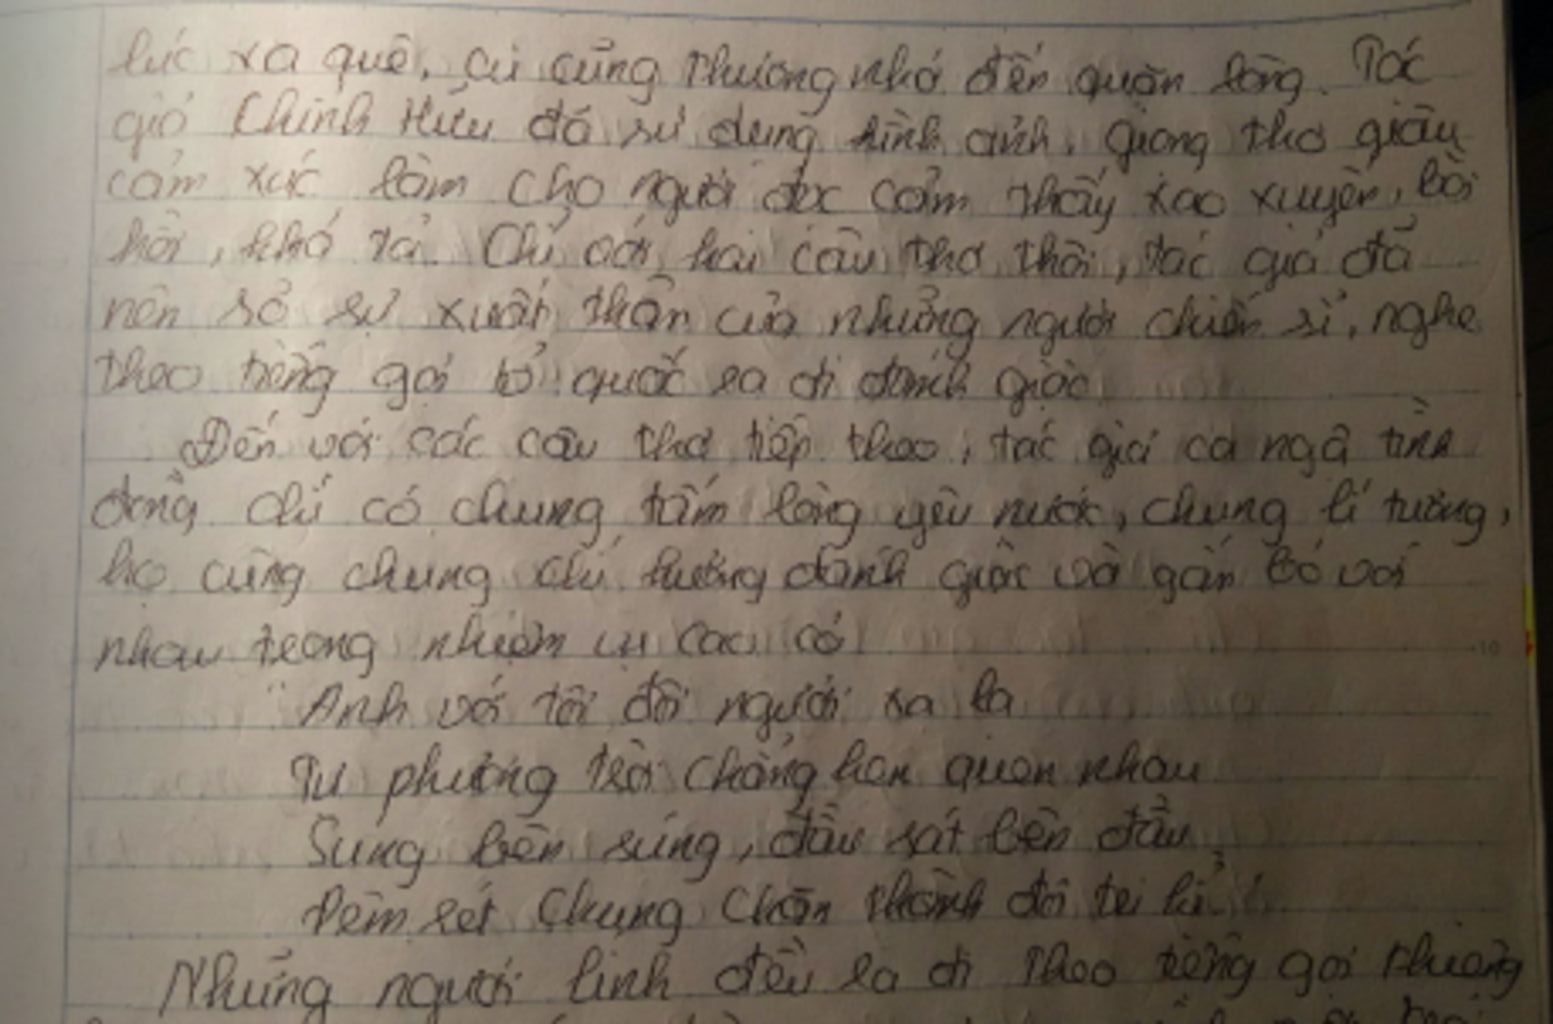 lúc xa quê, ai cũng thương nhớ đến quặn lòng. Tác
giả Chính Hữu đã sử dụng hình ảnh, giọng thơ giàu
cảm xúc làm cho người đọc cảm thấy xao xuyến, bồi
hồi, khó tả. Chỉ với hai câu thơ thôi, tác giả đã
nên rỏ sự xuất thân của những người chiến sĩ, nghe
theo tiếng gọi tổ quốc ra đi đánh giặc
Đến với các câu thơ tiếp theo, tác giả ca ngợi tình
đồng chí có chung tấm lòng yêu nước, chung lí tưởng,
họ cùng chung chí hướng đánh giặc và gắn bó với
nhau trong nhiệm vụ cao cả
"Anh với tôi đôi người xa lạ
Tự phương trời chẳng hẹn quen nhau
Súng bên súng, đầu sát bên đầu
Đêm rét chung chăn thành đôi tri kỉ"
Những người lính đều ra đi theo tiếng gọi thiêng